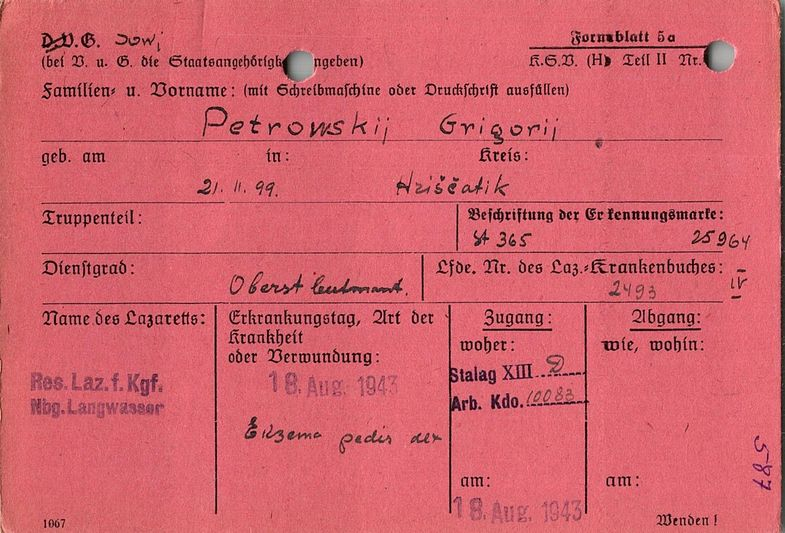 D.V.G. Sowj
Formblatt 5a
(bei V. u. G. die Staatsangehörigk ngeben)
K.S.V. (H) Teil II Nr.
Familien- u. Vorname: (mit Schreibmaschine oder Druckschrift ausfüllen)
Petrowskij Grigorij
geb. am in: Kreis:
21. 11. 99. Hriščatik
Truppenteil:
Beschriftung der Erkennungsmarke:
St 365 25964
Dienstgrad:
Oberstleutnant.
Lfde. Nr. des Laz.-Krankenbuches:
2493 IV
Name des Lazaretts:
Res. Laz. f. Kgf.
Nbg. Langwasser
Erkrankungstag, Art der
Krankheit
oder Verwundung:
18. Aug. 1943
Ekzema pedis dex
Zugang:
woher:
Stalag XIII D
Arb. Kdo. 10083
am:
18. Aug. 1943
Abgang:
wie, wohin:
am:
587
1067
Wenden!